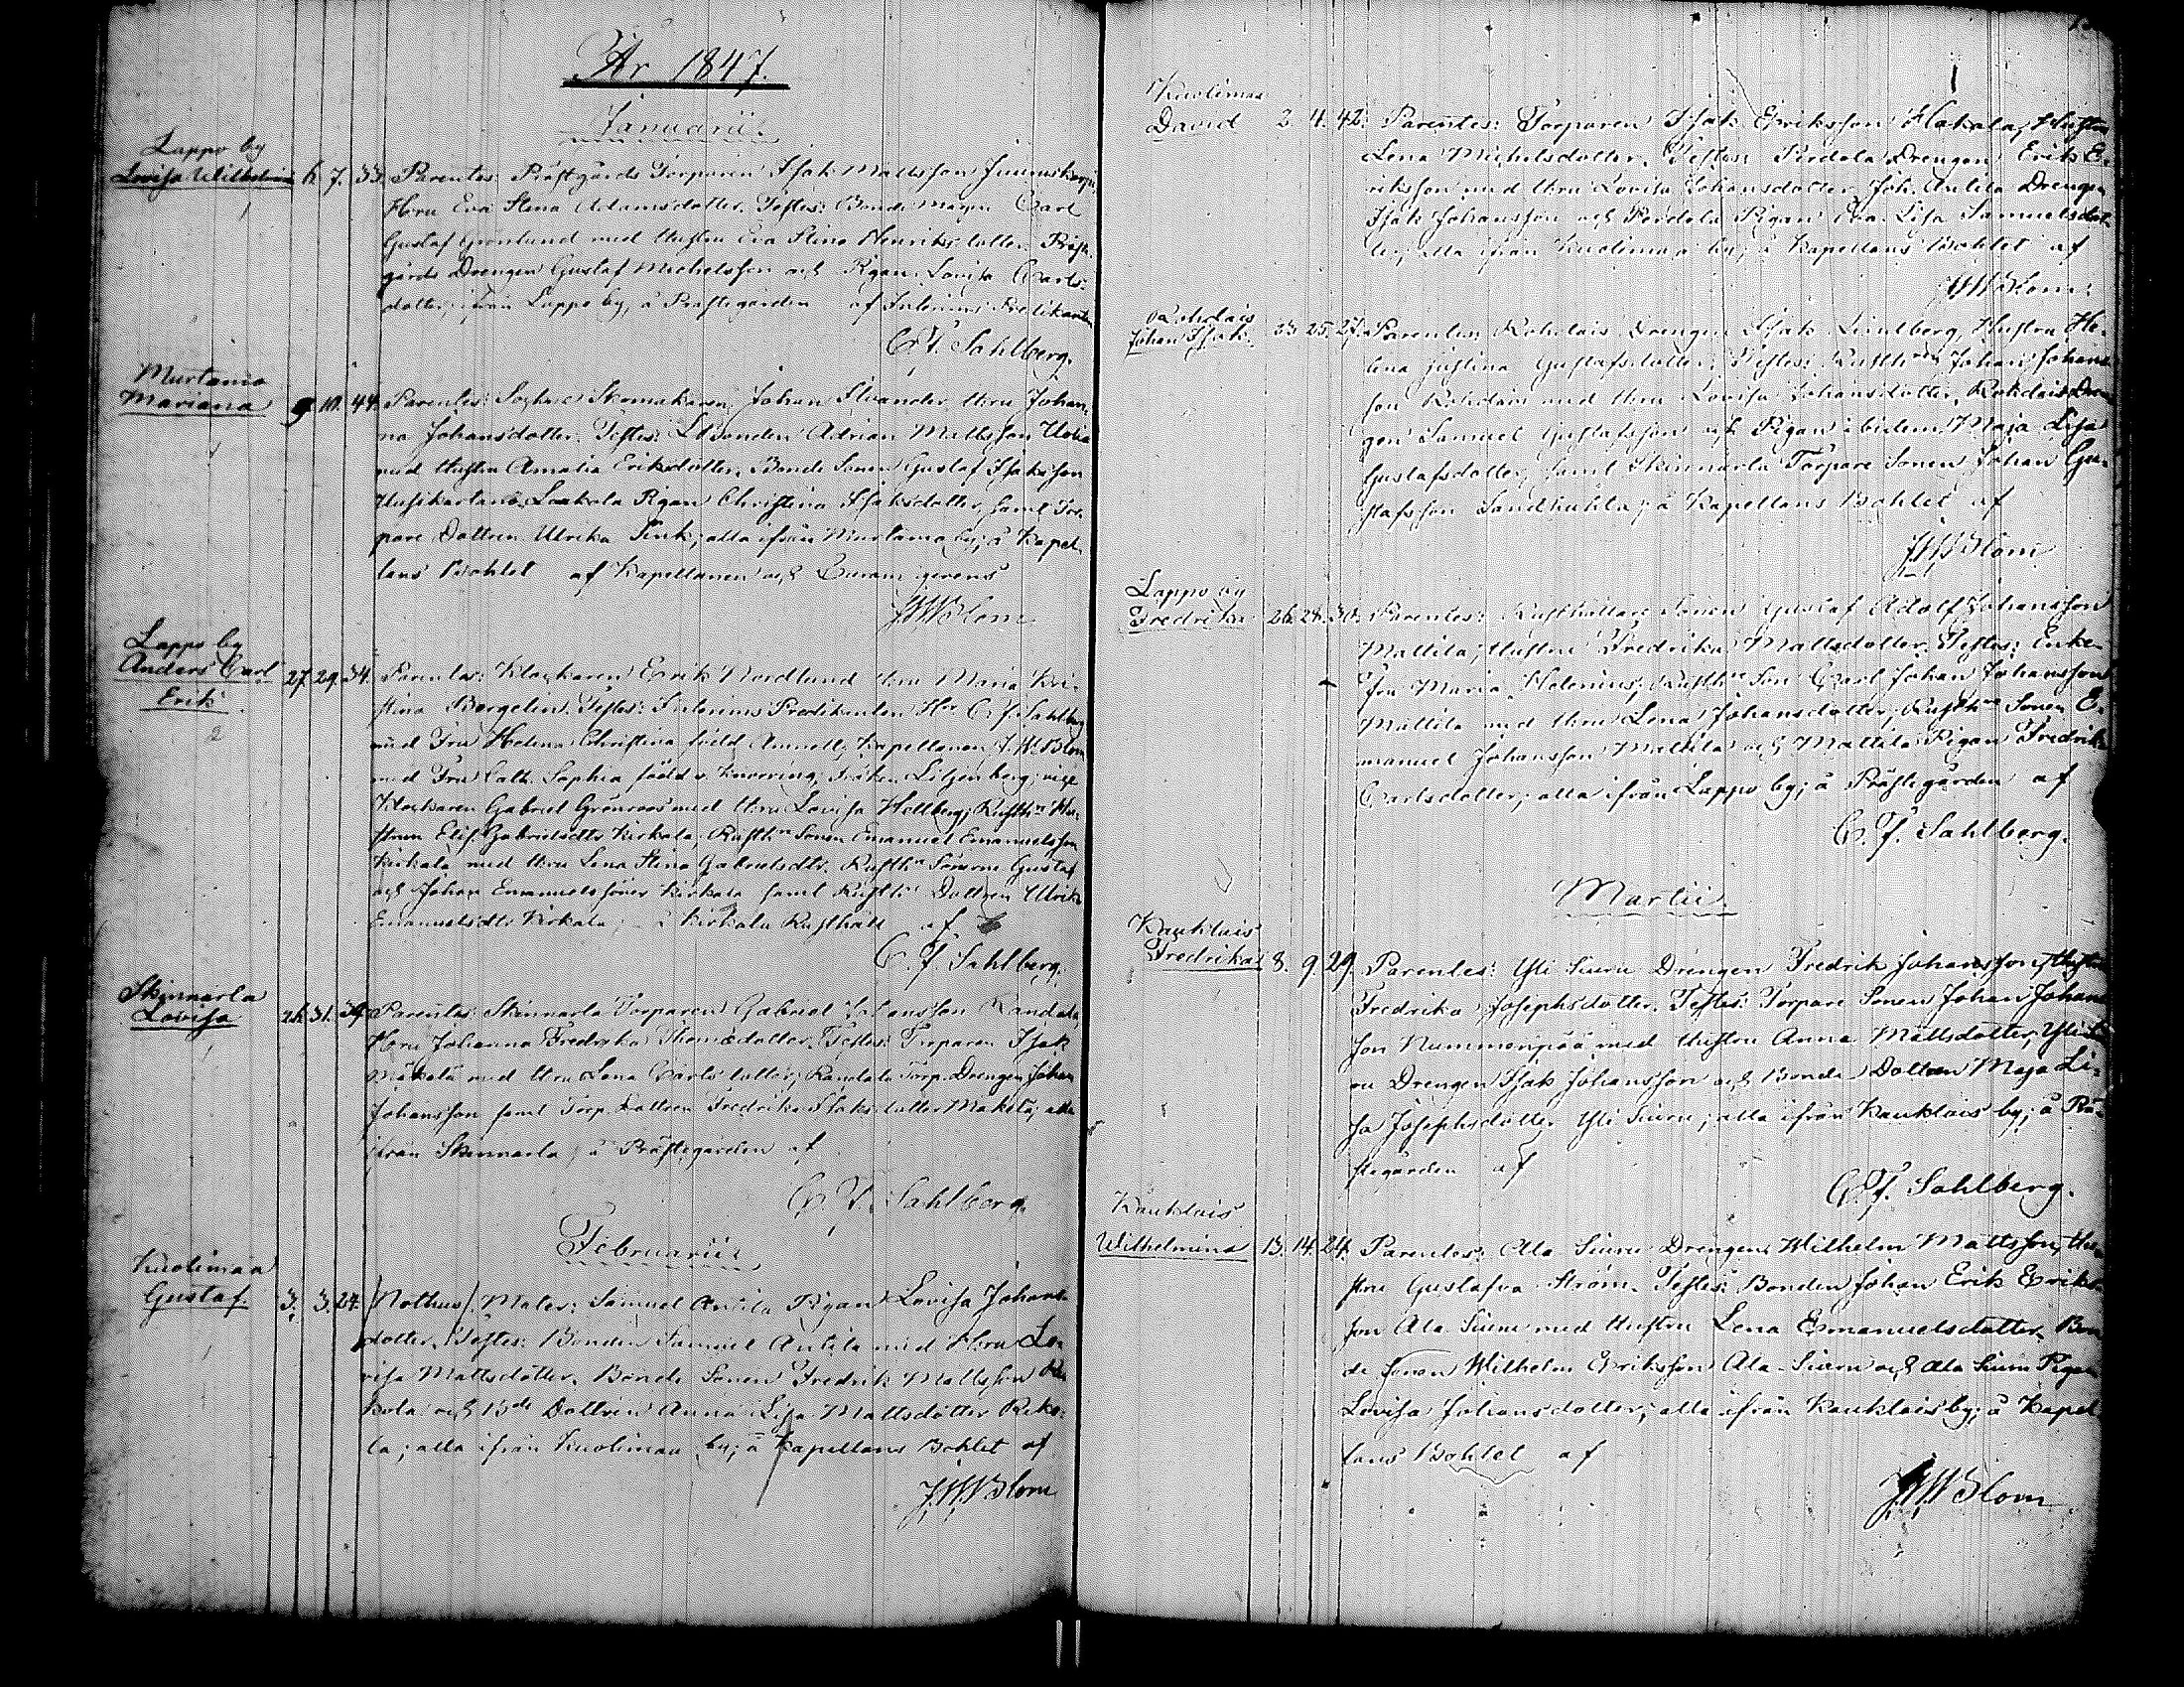 År 1847.
Januarii.
Lappo by
Lovisa Wilhelmina 6. 7. 33. Parentes: Prästgårds Torparen Isak Mattsson
Hsru Eva Stina Adamsdotter. Testes: Bonde Mågen Carl
Gustaf Grönlund med Hustru Eva Stina Henriksdotter. Präst-
gårds Drengen Gustaf Michelsson och Pigan Lovisa Carls-
dotter; ifrån Lappo by, å Prästegården af Interims Predikanten
C. F. Sahlberg.
Murtamo
Mariana 9. 10. 44. Parentes: Sockne Skomakaren Johan Silvander Hru Johan-
na Johansdotter. Testes: Bonden Adrian Mattsson
med Hustru Amalia Eriksdotter. Bonde Sonen Gustaf Isaksson
Uusikartano. Laukola Pigan Christina Isaksdotter, samt Tor-
pare Dottren Ulrika; alla ifrån Murtamo by; å Kapel-
lans Bohlet af Kapellanen och Curam gerens
J. W. Blom
Lappo by
Anders Carl
Erik 27. 29. 34. Parentes: Klockaren Erik Nordlund Hru Maria Kri-
stina Bergelin. Testes: Interims Predikanten Hr C. F. Sahlberg
med Fru Helena Christina född Amnell, Kapellanen J. W. Blom
med Fru Cath. Sophia född v. Knorring, Fröken Liljenberg; vice
Klockaren Gabriel Grönroos med Hru Lovisa Hellberg; Rusth:e Hu-
strun Elis. Gabrielsdtr Kirkala, Rusth:e Sonen Emanuel Emanuelsson
Kirkala med Hru Lena Stina Gabrielsdtr. Rusth:e Sönerne Gustaf
och Johan Emanuelssöner Kirkala samt Rusth:e Dottren Ulrika
Emanuelsdtr Kirkala; å Kirkala Rusthåll af
C. F. Sahlberg.
Skinnarla
Lovisa 26. 31. 39. Parentes: Skinnarla Torparen Gabriel Johansson Randala,
Hsru Johanna Fredrika Thomædotter. Testes: Torparen Isak
Mäkelä med Hru Lena Carlsdotter; Randala Torp. Drengen Johan
Johansson samt Torp. Dottren Fredrika Isaksdotter Mäkelä, alla
ifrån Skinnarla; å Prästegården af
C. F. Sahlberg.
Februarii.
Kuolimaa
Gustaf. 3. 3. 24. /Nothus/. Mater: Samuel Antila Pigan Lovisa Johans-
dotter. Testes: Bonden Samuel Antila med Hsru Lo-
visa Mattsdotter. Bonde Sonen Fredrik Mattsson
kola och B:de Dottren Anna Lisa Mattsdotter
la; alla ifrån Kuolimaa by; å Kapellans Bohlet af
J. W. Blom
1
Kuolimaa
David 2. 4. 42. Parentes: Torparen Isak Eriksson Hakala, Hustru
Lena Michelsdotter. Testes: Perdola Drengen Erik E-
riksson med Hru Lovisa Johansdotter, Joh. Antila Drengen
Isak Johansson och Perdola Pigan Eva Lisa Samuelsdot-
ter; alla ifrån Kuolimaa by; å Kapellans Bohlet af
J. W. Blom.
Rohdais
Johan Isak. 23. 25. 27. Parentes: Rohdais Drengen Isak Lindberg, Hustru He-
lena Justina Gustafsdotter. Testes: Rusth:n Johan Johans-
son Rohdais med Hru Lovisa Johansdotter, Rohdais Dren-
gen Samuel Gustafsson och Pigan ibidem Maja Lisa
Gustafsdotter, samt Skinnarla Torpare Sonen Johan Gu-
stafsson Sandkuhla; å Kapellans Bohlet af
J. W. Blom
Lappo by
Fredrika 26. 28. 30. Parentes: Rusthållare Sonen Gustaf Adolf Johansson
Mattila; Hustru Fredrika Mattsdotter. Testes: Enke
Fru Maria Helenius, Rusth:re Son Carl Johan Johansson
Mattila med Hru Lena Johansdotter; Rusth:re Sonen E-
manuel Johansson Mattila och Mattila Pigan Fredrika
Carlsdotter; alla ifrån Lappo by; å Prästegården af
C. F. Sahlberg.
Martii
Kauklais
Fredrika 8. 9. 29. Parentes: Yli Siuru Drengen Fredrik Johansson, Hustru
Fredrika Josephsdotter. Testes: Torpare Sonen Johan Johans-
son Nummenpää med Hustru Anna Mattsdotter, Yli Siu-
ru Drengen Isak Johansson och Bonde Dottren Maja Li-
sa Josephsdotter Yli Siuru; alla ifrån Kauklais by; å Prä-
stegården af
C. F. Sahlberg.
Kauklais
Wilhelmina 13. 14. 24. Parentes: Ala Siuru Drengen Wilhelm Mattsson, Hu-
stru Gustafva Ström. Testes: Bonden Johan Erik Eriks-
son Ala Siuru med Hustru Lena Emanuelsdotter. Bon-
de Sonen Wilhelm Eriksson Ala-Siuru och Ala Siuru Pigan
Lovisa Johansdotter; alla ifrån Kauklais by; å Kapel-
lans Bohlet af
J. W. Blom